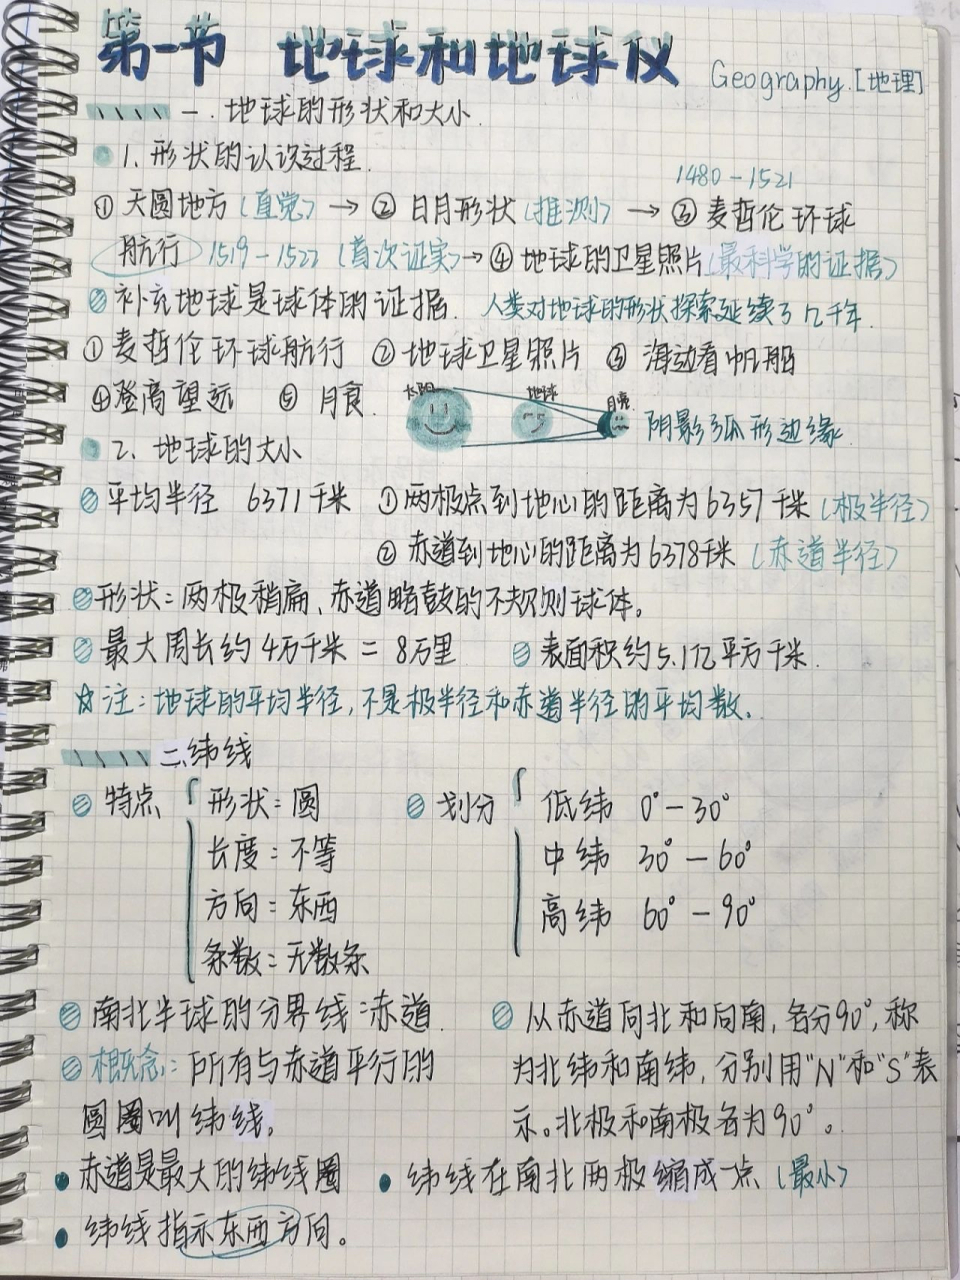 第一节 地球和地球仪 Geography.[地理]
一.地球的形状和大小.
1.形状的认识过程.
1480-1521
①天圆地方(直觉)→②日月形状(推测)→③麦哲伦环球
航行 1519-1522(首次证实)→④地球的卫星照片(最科学的证据)
补充地球是球体的证据. 人类对地球的形状探索延续了几千年.
①麦哲伦环球航行 ②地球卫星照片 ③海边看帆船
④登高望远 ⑤月食. 太阳 地球 月亮 阴影弧形边缘.
2.地球的大小
平均半径 6371千米 ①两极点到地心的距离为6357千米(极半径)
②赤道到地心的距离为6378千米(赤道半径)
形状:两极稍扁、赤道略鼓的不规则球体。
最大周长约4万千米=8万里 表面积约5.1亿平方千米.
☆注:地球的平均半径,不是极半径和赤道半径的平均数.
二.纬线
特点 形状:圆 划分 低纬 0°-30°
长度:不等 中纬 30°-60°
方向:东西 高纬 60°-90°
条数:无数条
南北半球的分界线:赤道.
概念:所有与赤道平行的
圆圈叫纬线。
从赤道向北和向南,各分90°,称
为北纬和南纬,分别用"N"和"S"表
示。北极和南极各为90°。
赤道是最大的纬线圈 纬线在南北两极缩成一点(最小)
纬线指示东西方向。